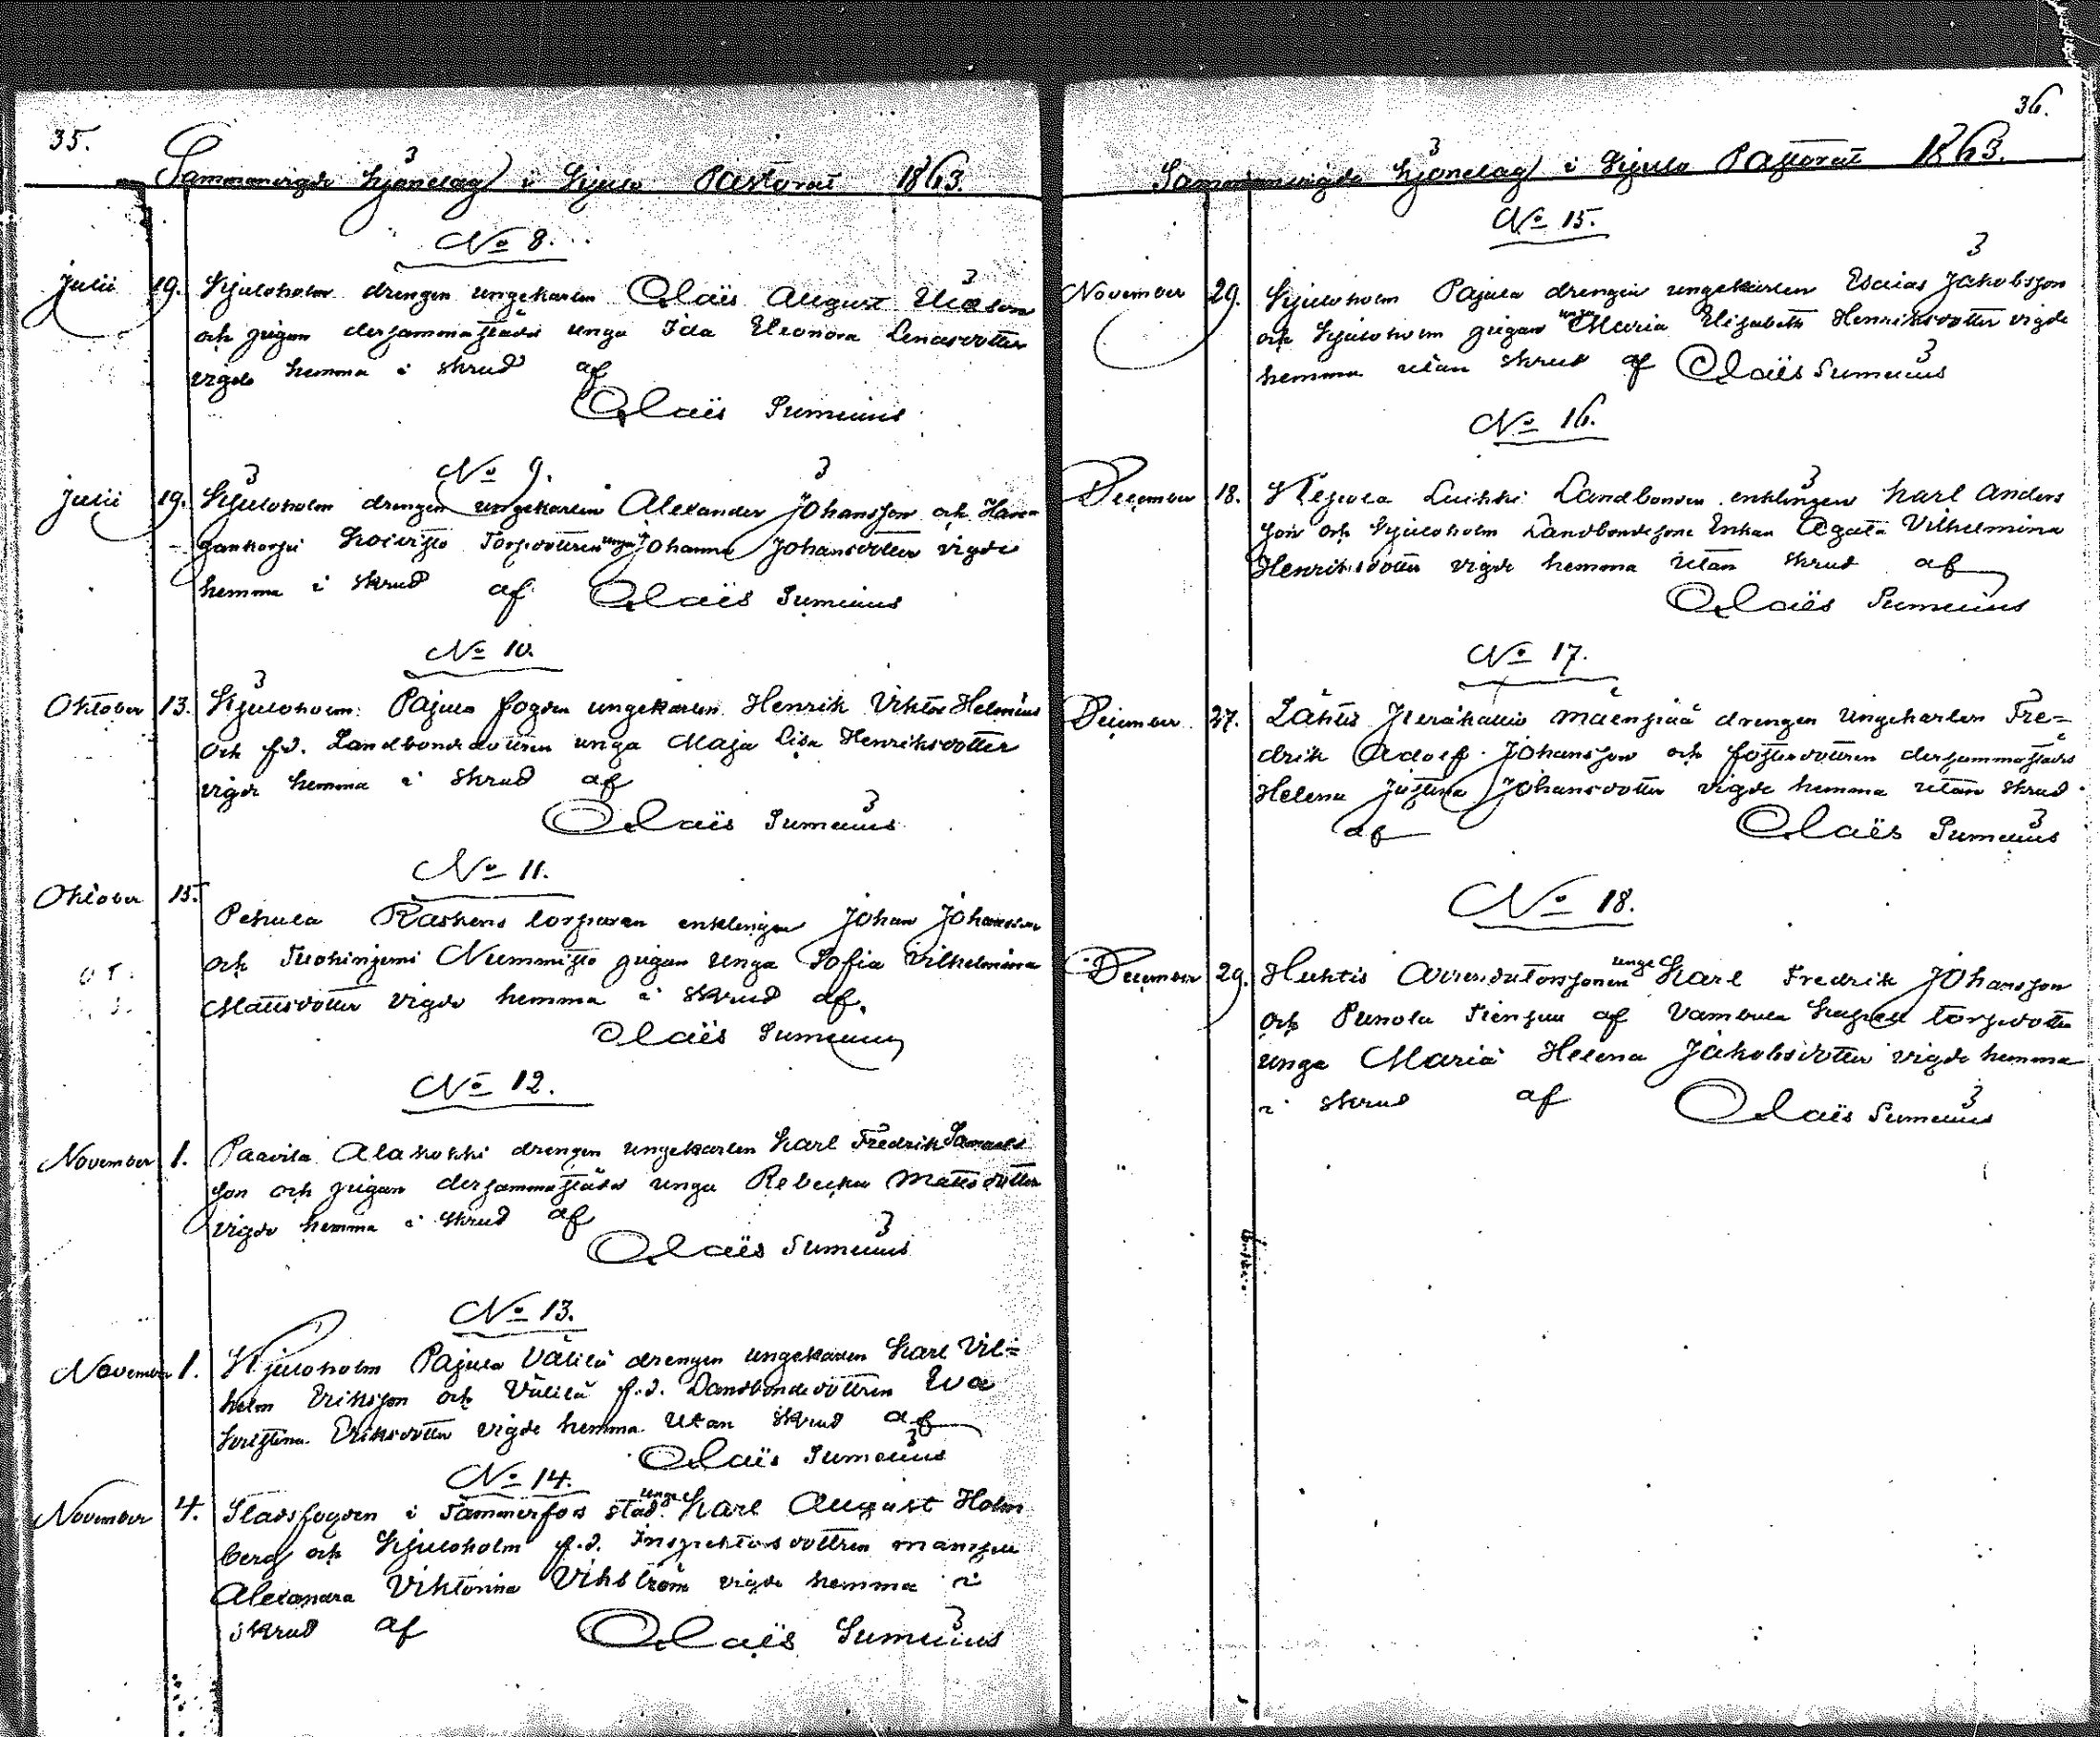 35.
Sammanvigde hjonelag i Kjulo Pastorat 1863.
No 8.
Julii 19. Kjuloholm drengen ungekarlen Claës August Eliasson
och pigan dersammastädes unga Ida Eleonora Lenasdotter
vigde hemma i skrud af
Claës Sumelius
No 9.
Julii 19. Kjuloholm drengen ungekarlen Alexander Johansson och
Koivisto Torpdottren unga Johanna Johansdotter vigde
hemma i skrud af Claës Sumelius
No 10.
Oktober 13. Kjuloholm Pajula fogden ungekarlen Henrik Viktor Helenius
och f.d. Landbondedottren unga Maja Lisa Henriksdotter
vigde hemma i skrud af
Claës Sumelius
No 11.
Oktober 15. Pehula Raskens torparen enklingen Johan Johansson
och Nummisto pigan unga Sofia Vilhelmina
Mattsdotter vigde hemma i skrud af
Claës Sumelius
No 12.
November 1. Paavila Alakokki drengen ungekarlen Karl Fredrik Samuels
son och pigan dersammastädes unga Rebecka Mattsdotter
vigde hemma i skrud af
Claës Sumelius
No 13.
November 1. Kjuloholm Pajula Välilä drengen ungekarlen Karl Vil=
helm Eriksson och Välilä f.d. Landbondedottren Eva
Kristina Eriksdotter vigde hemma utan skrud af
Claës Sumelius
No 14.
November 4. Stadsfogden i Tammerfors stad unge Karl August Holm
berg och Kjuloholm f.d. Inspektorsdottren mamsell
Alexandra Viktorina Vikström vigde hemma i
skrud af Claës Sumelius
36.
Sammanvigde hjonelag i Kjulo Pastorat 1863.
No 15.
November 29. Kjuloholm Pajula drengen ungekarlen Esaias Jakobsson
och Kjuloholm pigan unga Maria Elisabeth Henriksdotter vigde
hemma utan skrud af Claës Sumelius
No 16.
December 18. Luikki Landbonden enklingen Karl Anders
son och Kjuloholm Landbondesons Enkan Agata Vilhelmina
Henriksdotter vigde hemma utan skrud af
Claës Sumelius
No 17.
December 27. Lähtis Mäenpää drengen ungekarlen Fre=
drik Adolf Johansson och fosterdottren dersammastädes
Helena Justina Johansdotter vigde hemma utan skrud
af Claës Sumelius
No 18.
December 29. Huhtis Arrendatorssonen unge Karl Fredrik Johansson
och Punola af Vambula Kapell torpdotter
unga Maria Helena Jakobsdotter vigde hemma
i skrud af Claës Sumelius